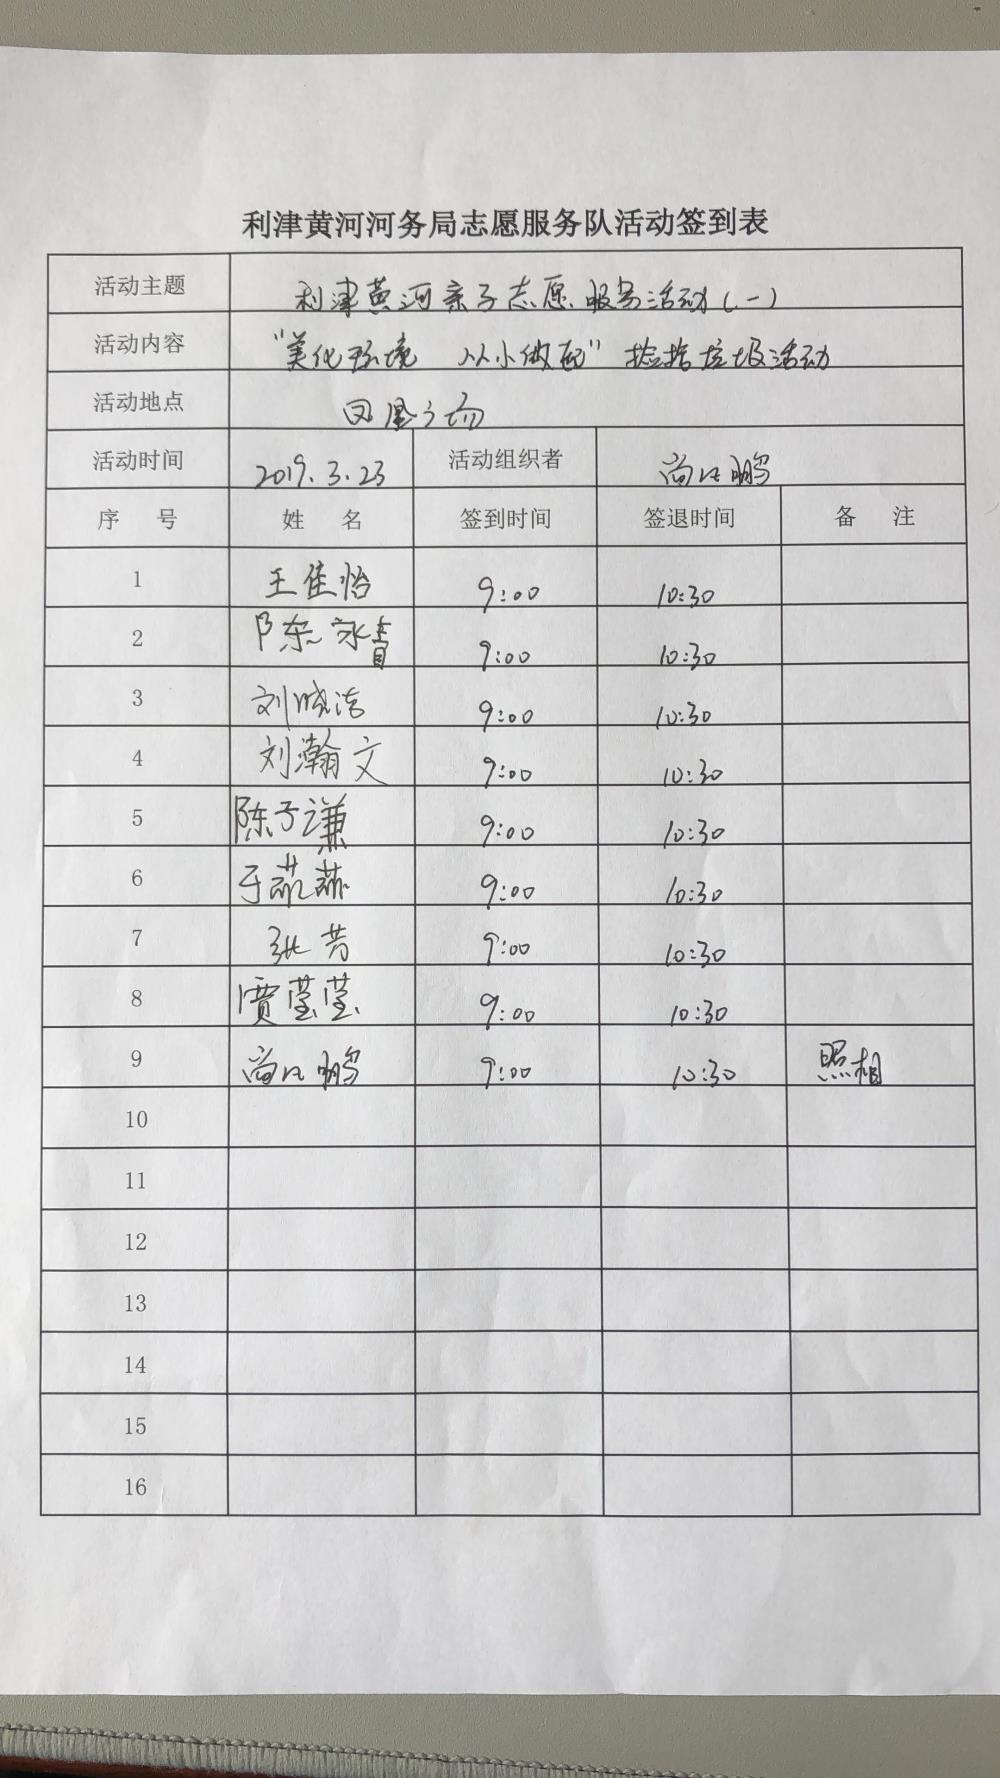 利津黄河河务局志愿服务队活动签到表
活动主题 利津黄河亲子志愿服务活动(一)
活动内容 "美化环境 从小做起" 捡拾垃圾活动
活动地点 凤凰广场
活动时间 2019.3.23 活动组织者 尚 鹏
序 号 姓 名 签到时间 签退时间 备 注
1 王佳怡 9:00 10:30
2 陈 9:00 10:30
3 刘晓洁 9:00 10:30
4 刘瀚文 9:00 10:30
5 陈子谦 9:00 10:30
6 于 9:00 10:30
7 张芳 9:00 10:30
8 贾莹莹 9:00 10:30
9 尚 鹏 9:00 10:30 照相
10
11
12
13
14
15
16